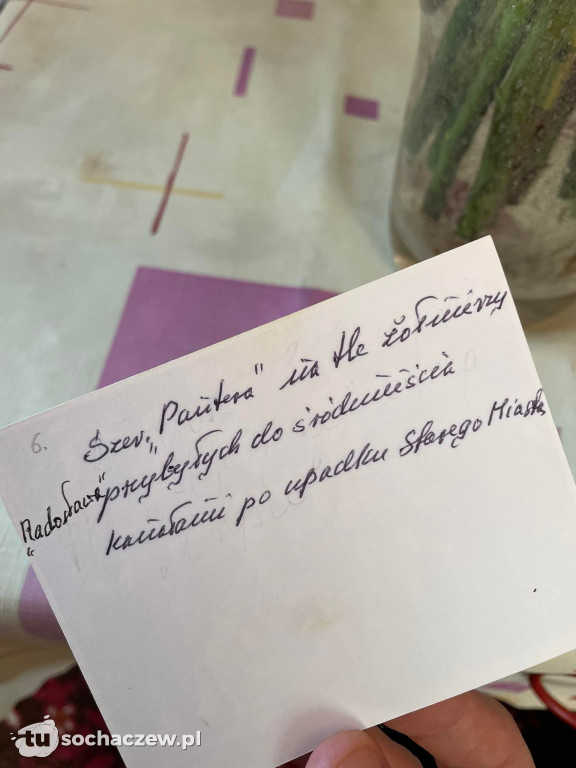 6. Szer. "Pantera" na tle żołnierzy
"Radosława" przybyłych do śródmieścia
kanałami po upadku Starego Miasta
tusochaczew.pl